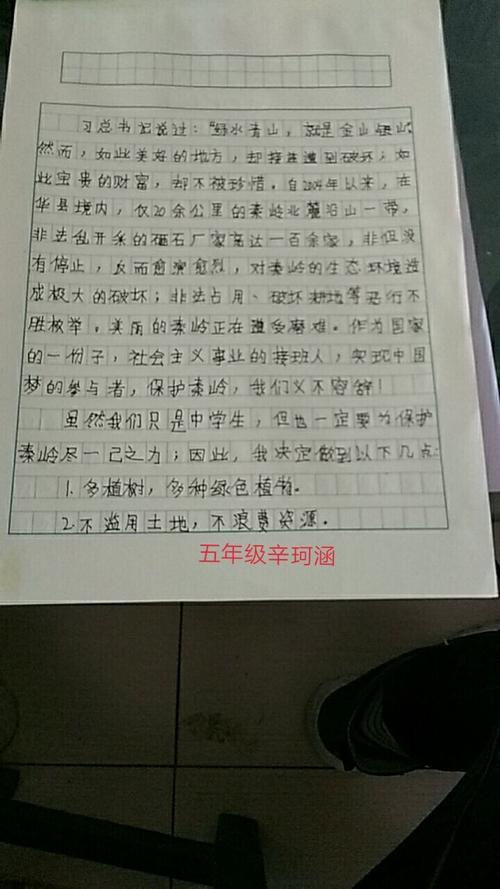 习总书记说过：“绿水青山，就是金山银山”
然而，如此美好的地方，却接连遭到破坏；如
此宝贵的财富，却不被珍惜。自2004年以来，在
华县境内，仅20余公里的秦岭北麓沿山一带，
非法乱开采的石厂家高达一百余家，非但没
有停止，反而愈演愈烈，对秦岭的生态环境造
成极大的破坏；非法占用、破坏耕地等恶行不
胜枚举，美丽的秦岭正在遭受磨难。作为国家
的一份子，社会主义事业的接班人，实现中国
梦的参与者，保护秦岭，我们义不容辞！
虽然我们只是中学生，但也一定要为保护
秦岭尽一己之力；因此，我决定做到以下几点：
1.多植树，多种绿色植物。
2.不滥用土地，不浪费资源。
五年级辛珂涵